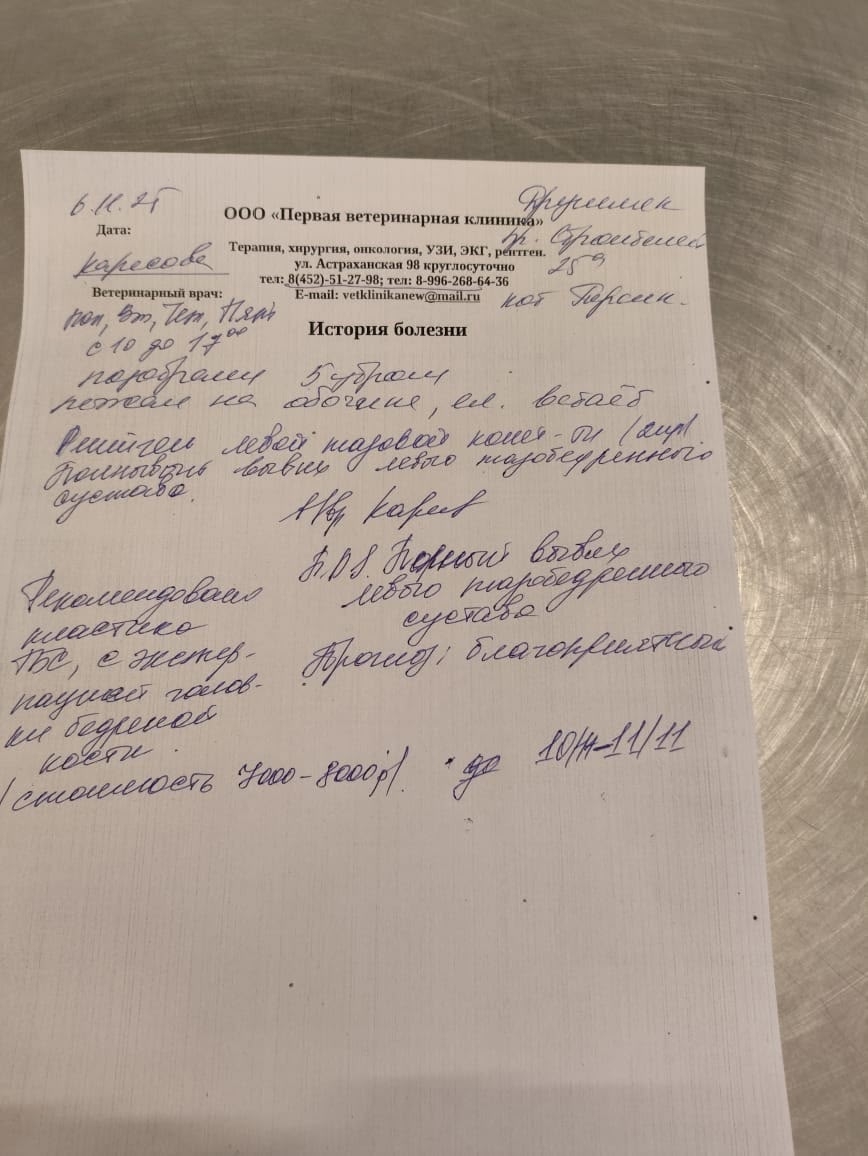 6.11.25
Дата:
ООО «Первая ветеринарная клиника»
пр. Строителей
25
Терапия, хирургия, онкология, УЗИ, ЭКГ, рентген.
ул. Астраханская 98 круглосуточно
тел: 8(452)-51-27-98; тел: 8-996-268-64-36
E-mail: vetklinikanew@mail.ru
Ветеринарный врач:
кот Персик.
Пон, Вт, Чет, Пят
с 10 до 17 00
История болезни
подобрали 5 утром
лежал на обочине, ел. встаёт
Рентген левой тазовой конеч-ти
Полный вывих левого тазобедренного
сустава.
Полный вывих
левого тазобедренного
сустава
Прогноз: благоприятный
Рекомендовано
пластика
ТБС, с экстер-
пацией голов-
ки бедреной
кости.
/стоимость 7000-8000р/.
до 10/11-11/11